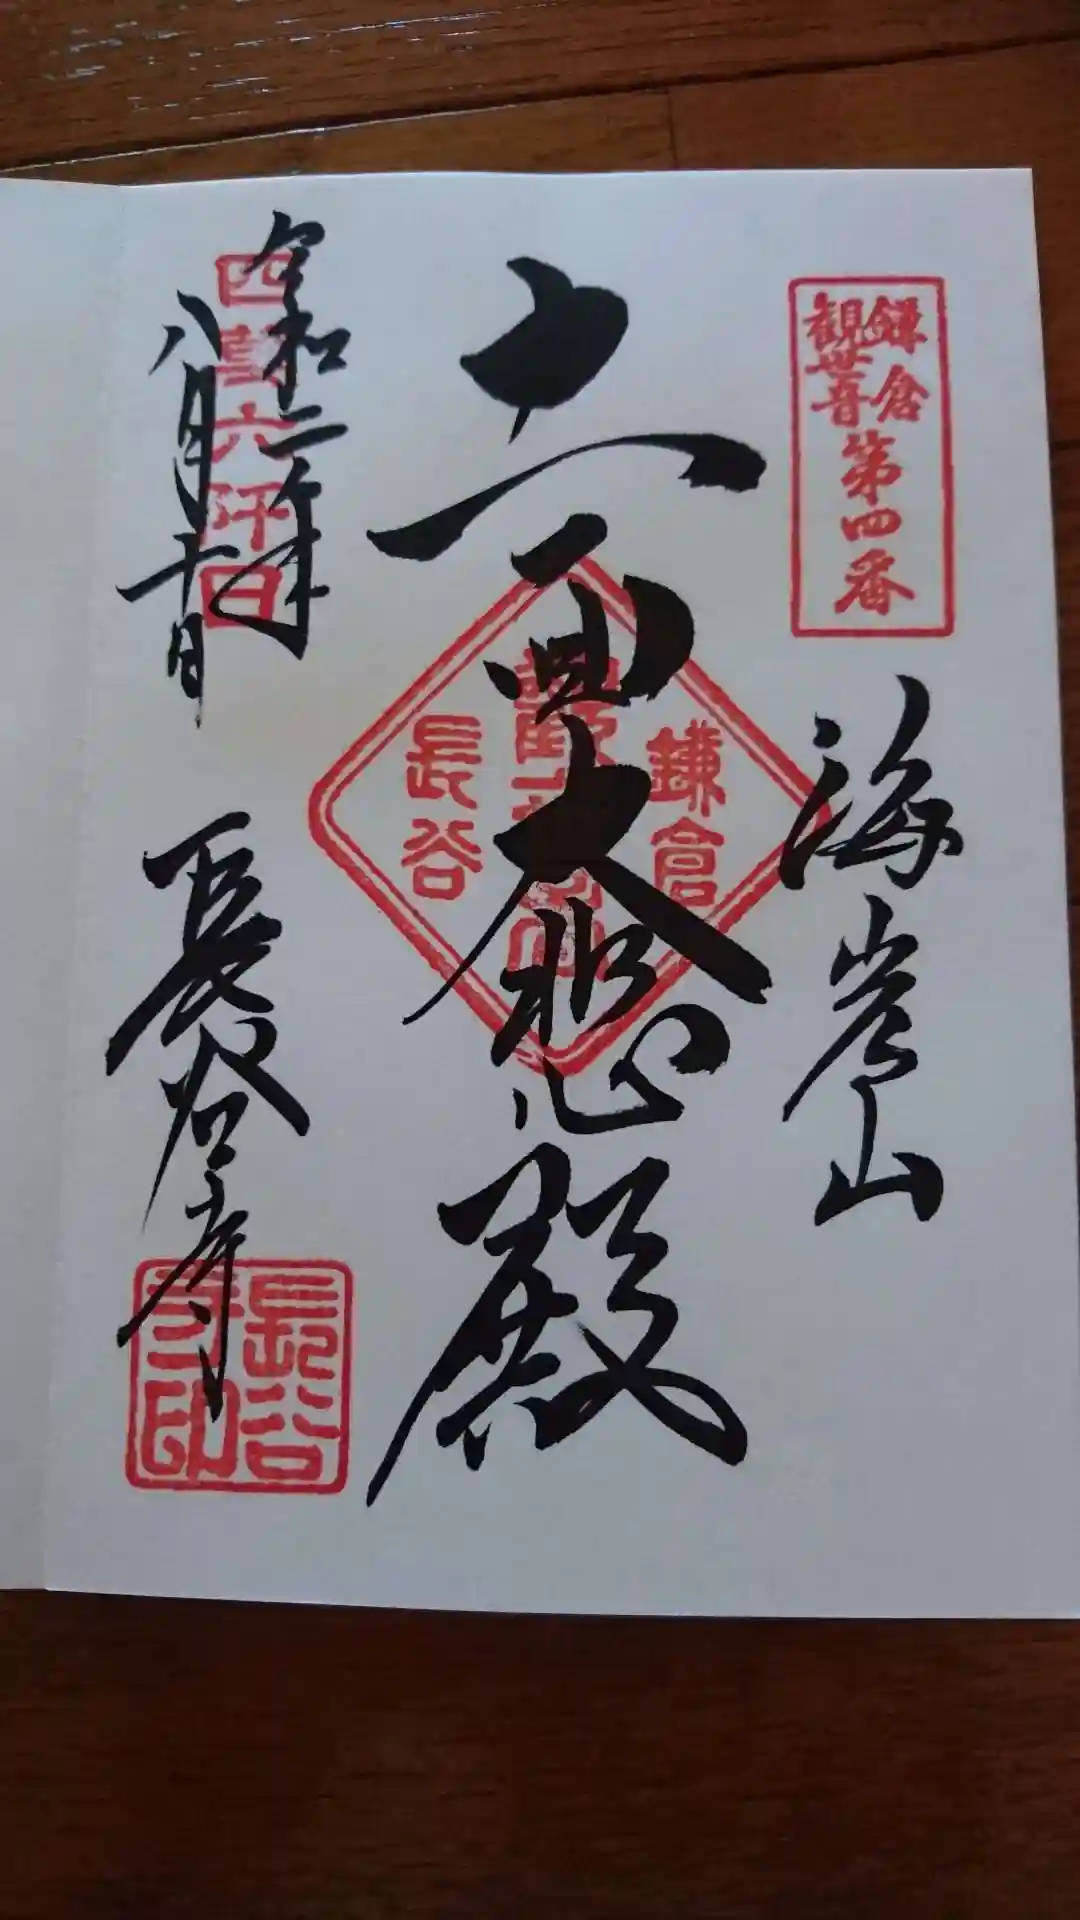 鎌倉
観世音
第四番
海光山
十一面大悲殿
鎌倉
長谷
令和二年
八月十日
四萬六阡日
長谷寺
長谷
寺印